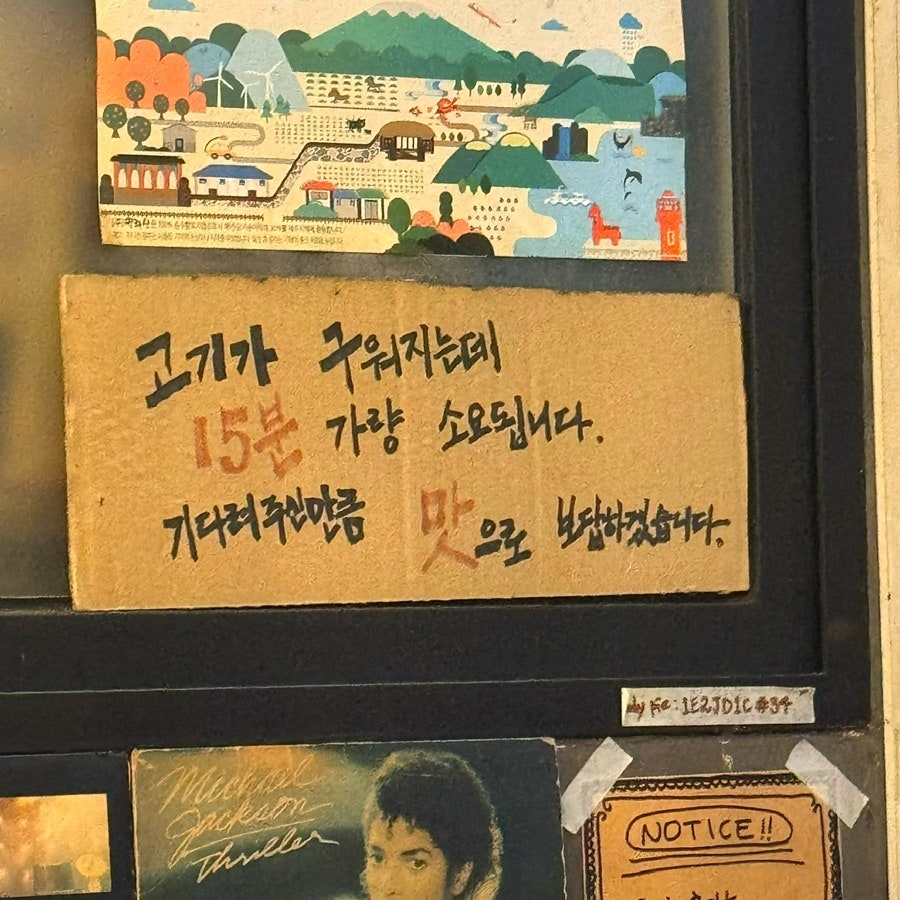 고기가 구워지는데
15분 가량 소요됩니다.
기다려주신만큼 맛으로 보답하겠습니다.
1E2JD1C#34
Michael
Jackson
Thriller
NOTICE!!